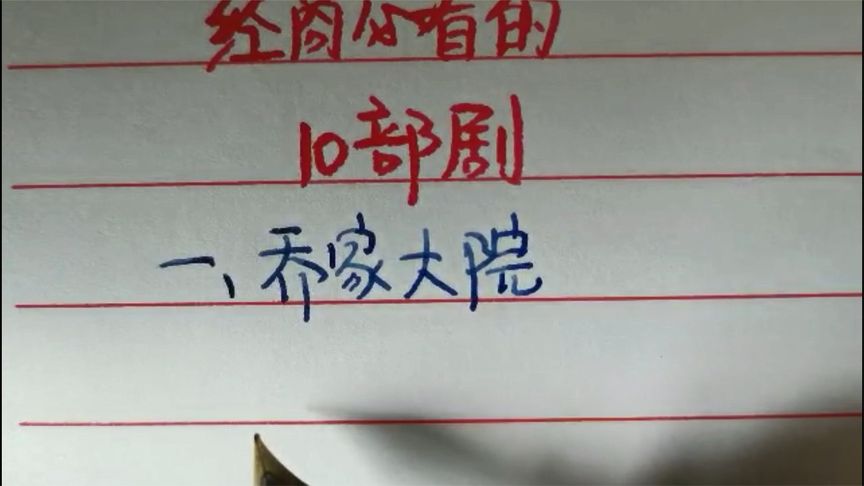 经商必看的
10部剧
一、乔家大院